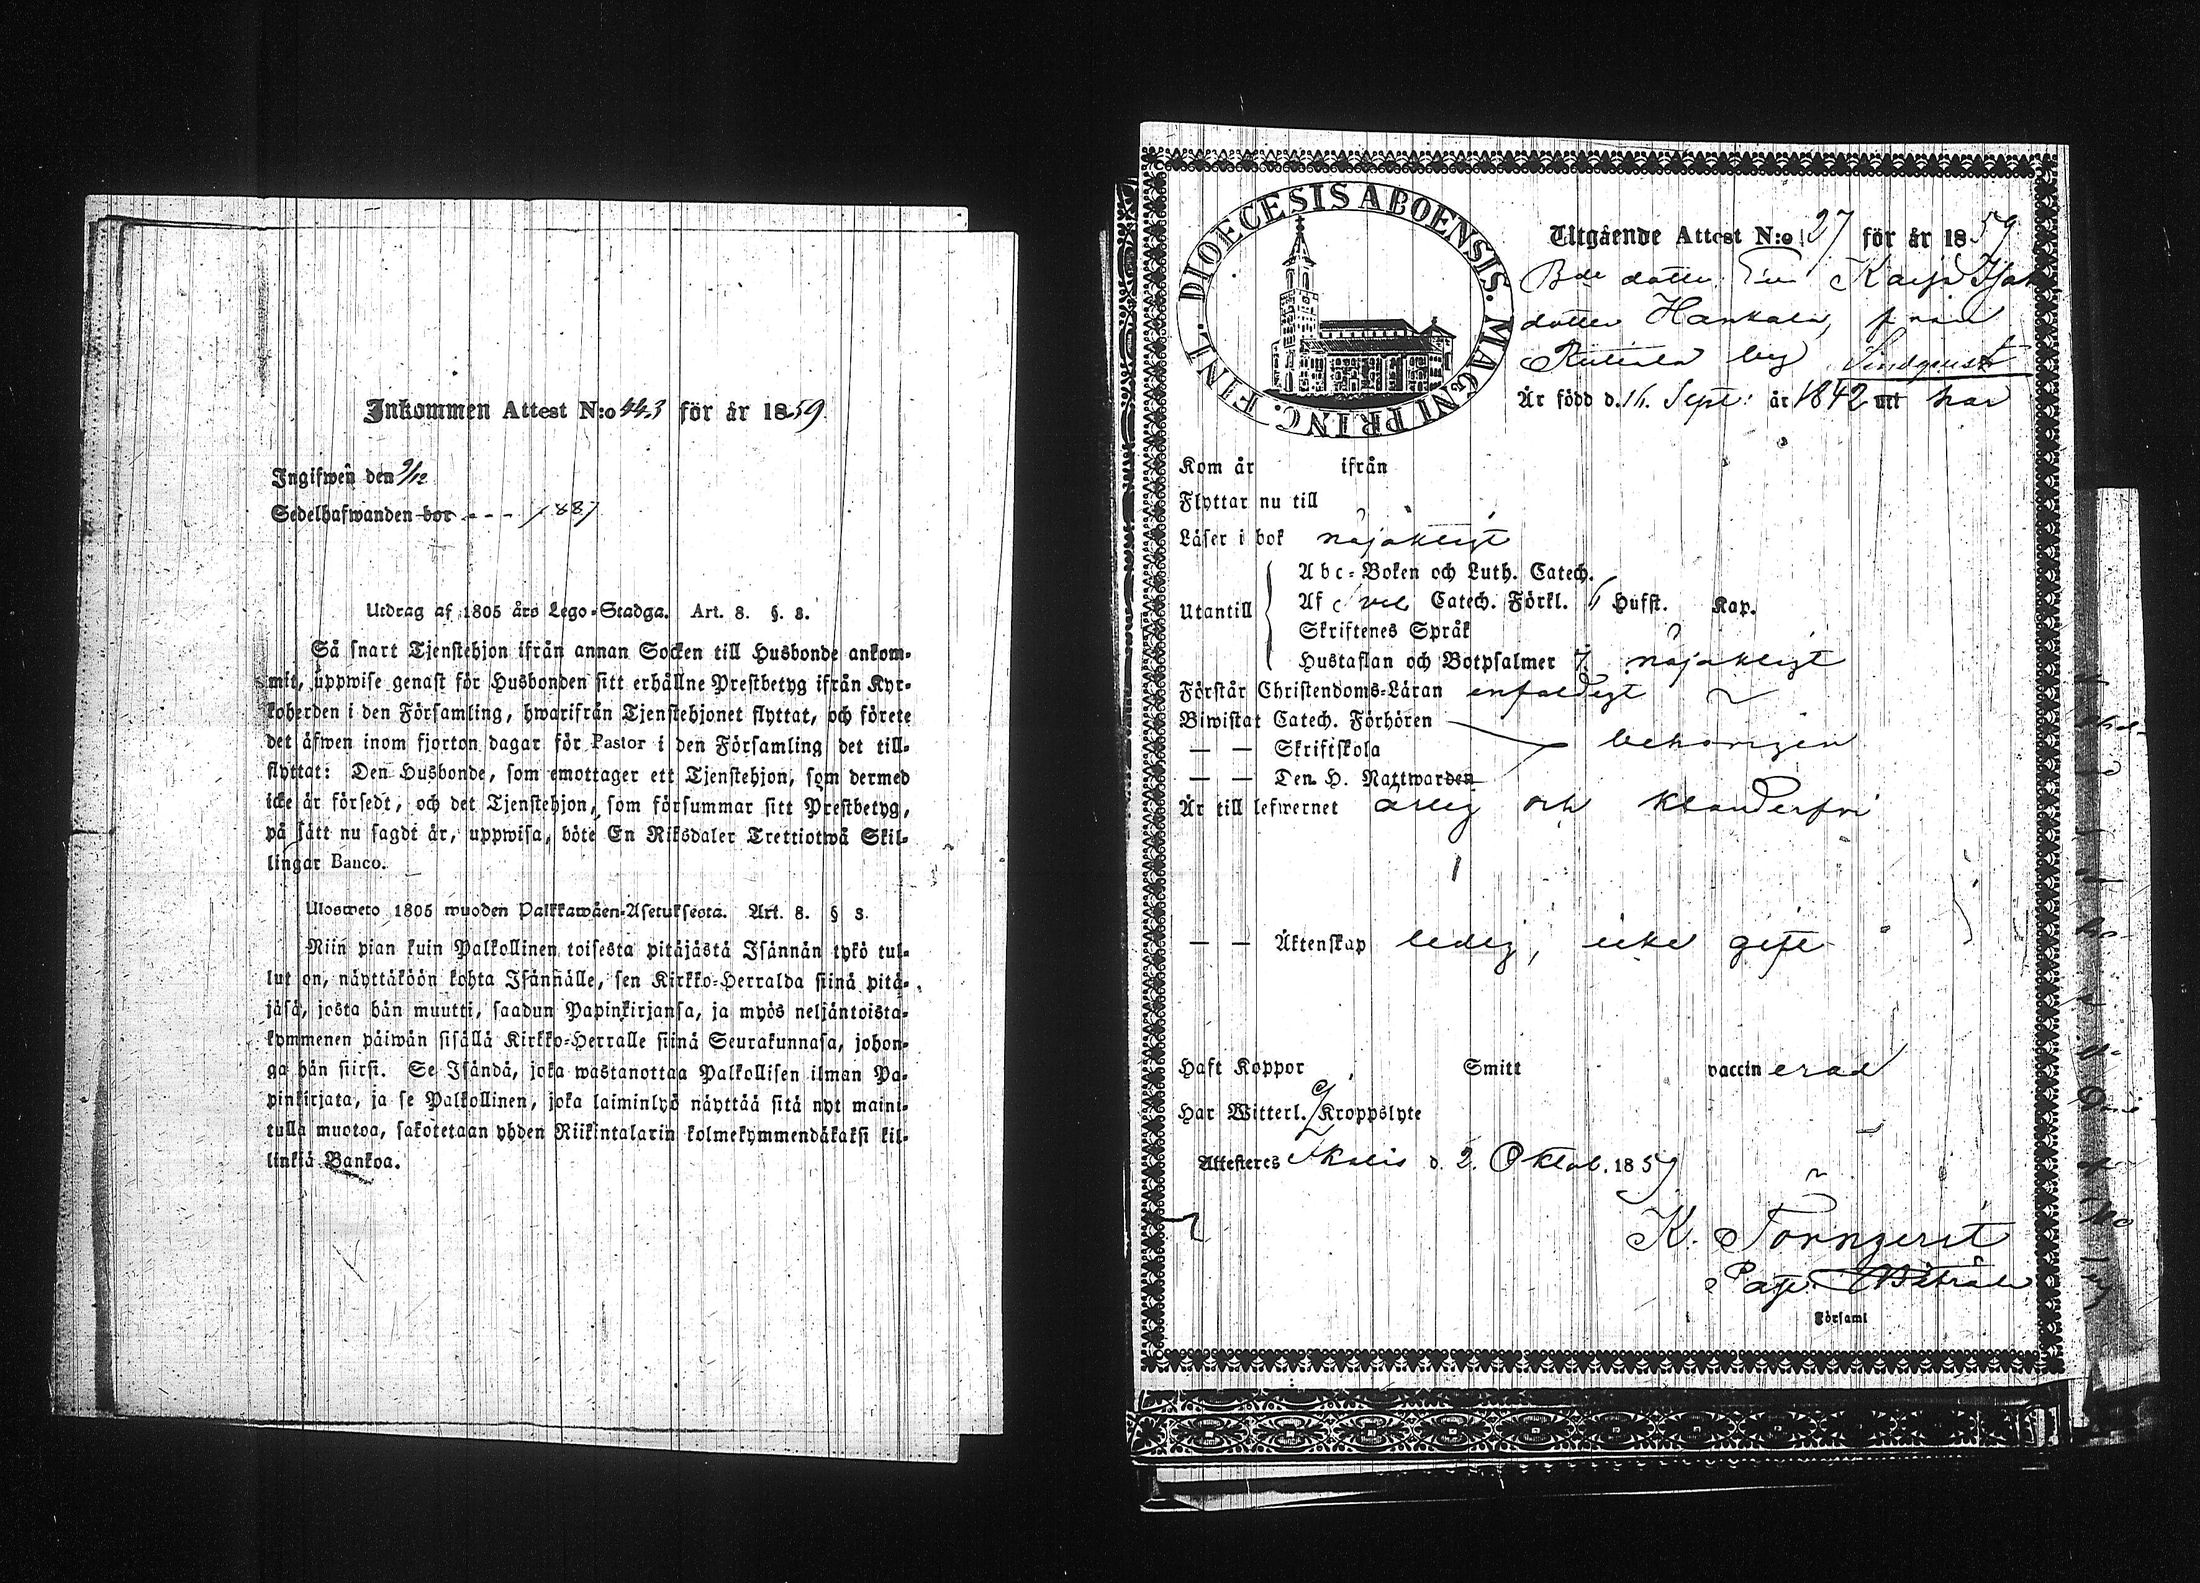 Inkommen Attest N:o 443 för år 1859
Ingifwen den 9/12
Sedelhafwanden bor - - - 1887
Utdrag af 1805 års Lego-Stadga. Art. 8. §. 3.
Så snart Tjenstehjon ifrån annan Socken till Husbonde ankom-
mit, uppwise genast för Husbonden sitt erhållne Prestbetyg ifrån Kyr-
koherden i den Församling, hwarifrån Tjenstehjonet flyttat, och förete
det äfwen inom fjorton dagar för Pastor i den Församling det till-
flyttat: Den Husbonde, som emottager ett Tjenstehjon, som dermed
icke är försedt, och det Tjenstehjon, som försummar sitt Prestbetyg,
på sätt nu sagdt är, uppwisa, böte En Riksdaler Trettiotwå Skil-
lingar Banco.
Ulosweto 1805 wuoden Palkkawäen-Asetuksesta. Art. 8. § 3.
Niin pian kuin Palkollinen toisesta pitäjästä Isännän tykö tul-
lut on, näyttäköön kohta Isännälle, sen Kirkko-Herralda siinä pitä-
jäsä, josta hän muutti, saadun Papinkirjansa, ja myös neljäntoista-
kymmenen päiwän sisällä Kirkko-Herralle siinä Seurakunnasa, johon-
ga hän siirsi. Se Isändä, joka wastanottaa Palkollisen ilman Pa-
pinkirjata, ja se Palkollinen, joka laiminlyö näyttää sitä nyt maini-
tulla muotoa, sakotetaan yhden Riikintalarin kolmekymmendäkaksi kil-
linkiä Bankoa.
DIOECESIS ABOENSIS. MAGNI PRINC. FINL.
Utgående Attest N:o 27 för år 1859
Bde dotter Kaisa Isaks
dotter Hankala, från
by Lindqvist
Är född d. 16. Sept: år 1842 har
Kom år ifrån
Flyttar nu till
Läser i bok nöjaktigt
Utantill
Abc-Boken och Luth. Catech.
Af Catech. Förkl. Hufst. Kap.
Skriftenes Språk
Hustaflan och Botpsalmer 7. nöjaktigt
Förstår Christendoms-Läran enfaldigt
Biwistat Catech. Förhören
— — Skriftskola behörigen
— — Den H. Nattwarden
Är till lefwernet ärlig och klanderfri
— — Äktenskap ledig, icke gift
Haft Koppor Smitt vaccinerad
Har Witterl. Kroppslyte
Attesteras d. 2. Oktob. 1859
K. Törnqvist
Past.
Förſaml